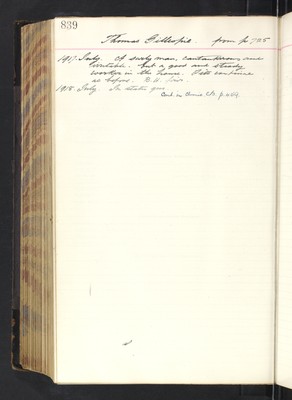 839
Thomas Gillespie from p 705
1917. July. A surly man, cantankerous and
irritable. but a good and steady
worker in the house. Pills continue
as before. B.H. Fair.
1918. July In statu quo
Cont. in Chronic C.B. p.